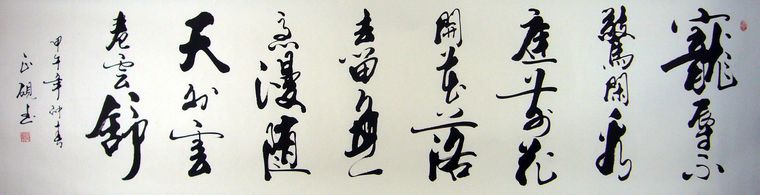 寵辱不
驚閑看
庭前花
開花落
去留無
意漫随
天外雲
卷雲舒
甲午年仲春
正硯書